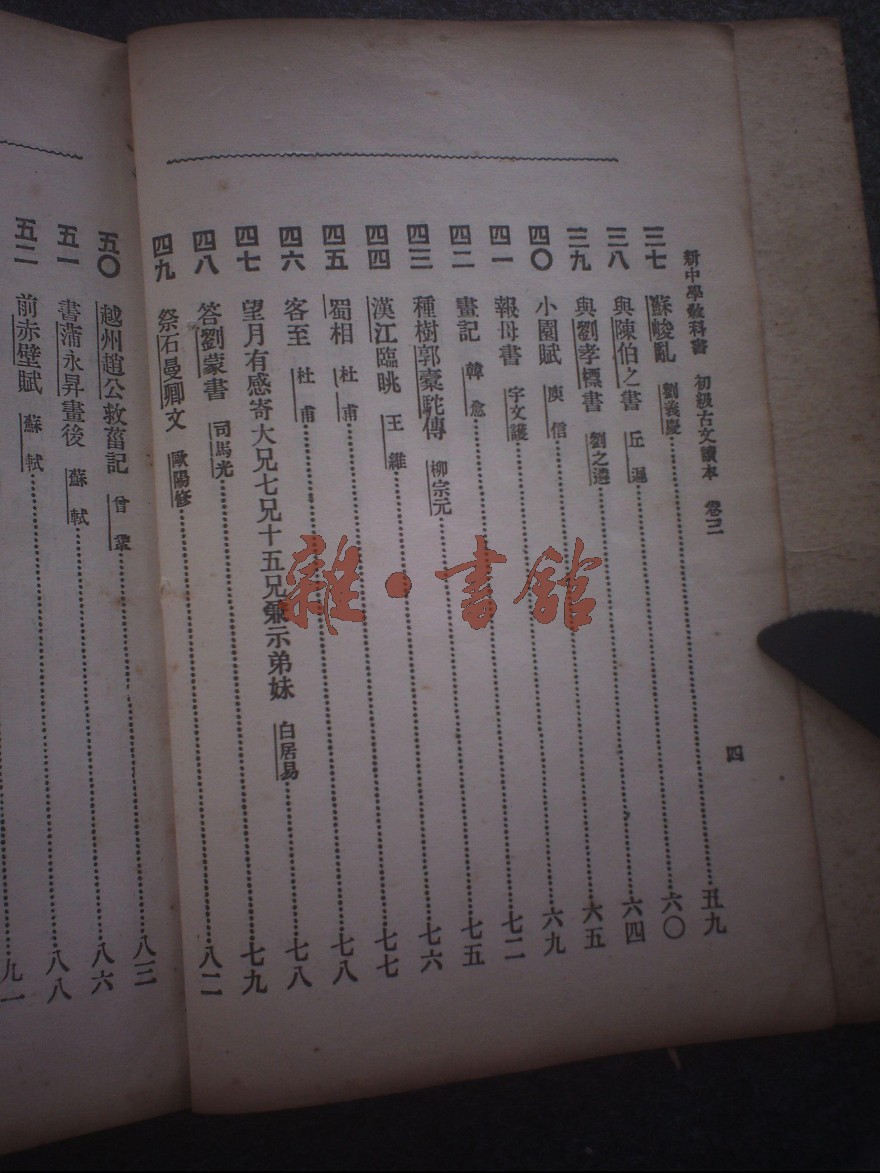 新中學教科書 初級古文讀本 卷三
四
三七 蘇峻亂 劉義慶……五九
三八 與陳伯之書 丘遲……六〇
三九 與劉孝標書 劉之遴……六四
四〇 小園賦 庾信……六五
四一 報母書 宇文護……六九
四二 畫記 韓愈……七二
四三 種樹郭橐駝傳 柳宗元……七五
四四 漢江臨眺 王維……七六
四五 蜀相 杜甫……七七
四六 客至 杜甫……七八
四七 望月有感寄大兄七兄十五兄兼示弟妹 白居易……七八
四八 答劉蒙書 司馬光……七九
四九 祭石曼卿文 歐陽修……八二
五〇 越州趙公救菑記 曾鞏……八三
五一 書蒲永昇畫後 蘇軾……八六
五二 前赤壁賦 蘇軾……八八
九一
雜·書館